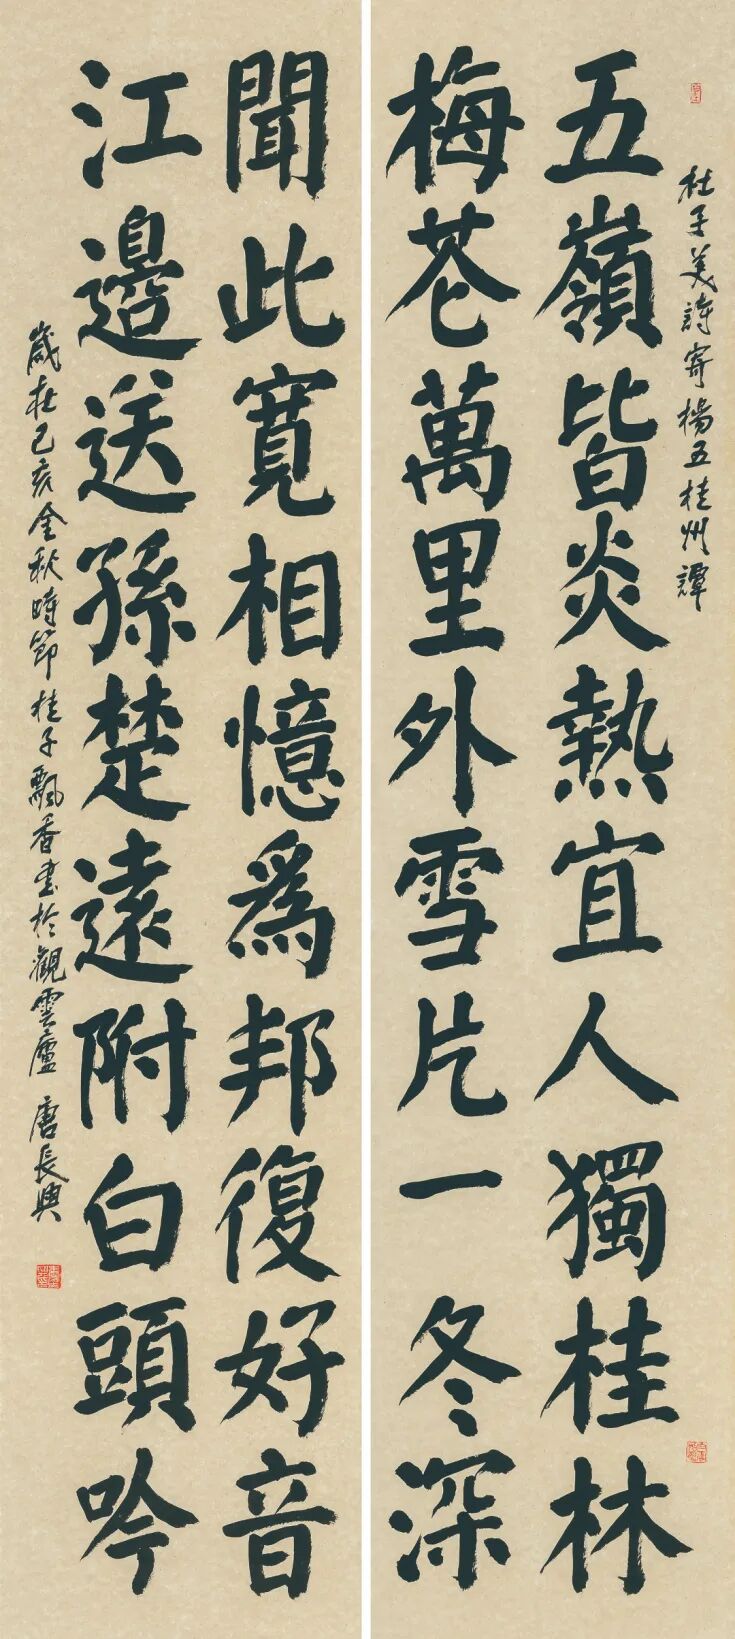 杜子美詩寄楊五桂州譚
五嶺皆炎熱宜人獨桂林
梅花萬里外雪片一冬深
聞此寬相憶為邦復好音
江邊送孫楚遠附白頭吟
歲在己亥金秋時節桂子飄香書於觀雲廬 唐長興